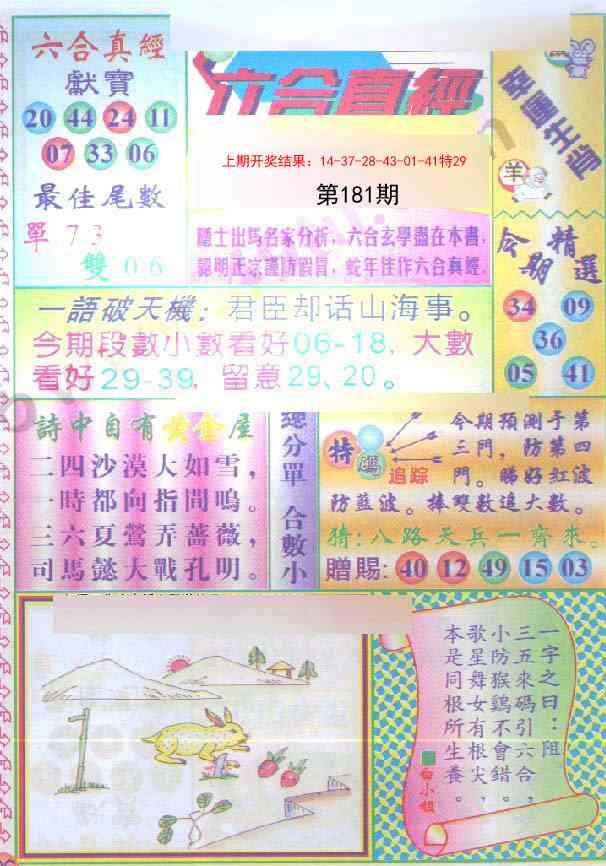 六合真經
獻寶
20 44 24 11
07 33 06
最佳尾數
單 73
雙 06
六合真經
上期开奖结果：14-37-28-43-01-41特29
第181期
隱士出馬名家分析，六合玄學盡在本書，
認明正宗謹防假冒，蛇年佳作六合真經。
幸運生肖
羊
今期精選
34 09
36
05 41
一語破天機：君臣却话山海事。
今期段數小數看好06-18，大數
看好29-39，留意29、20。
詩中自有黃金屋
二四沙漠大如雪，
一時都向指間鳴。
三六夏鶯弄薔薇，
司馬懿大戰孔明。
總分單 合數小
特碼
追踪
今期預測于第
三門，防第四
門。睇好紅波
防藍波。捧雙數追大數。
猜：八路天兵一齊來。
贈賜：40 12 49 15 03
一字之曰：阻
三五來碼引六合，
小防猴鷄不會錯，
歌星舞女有根尖，
本是同根所生養。
白小姐